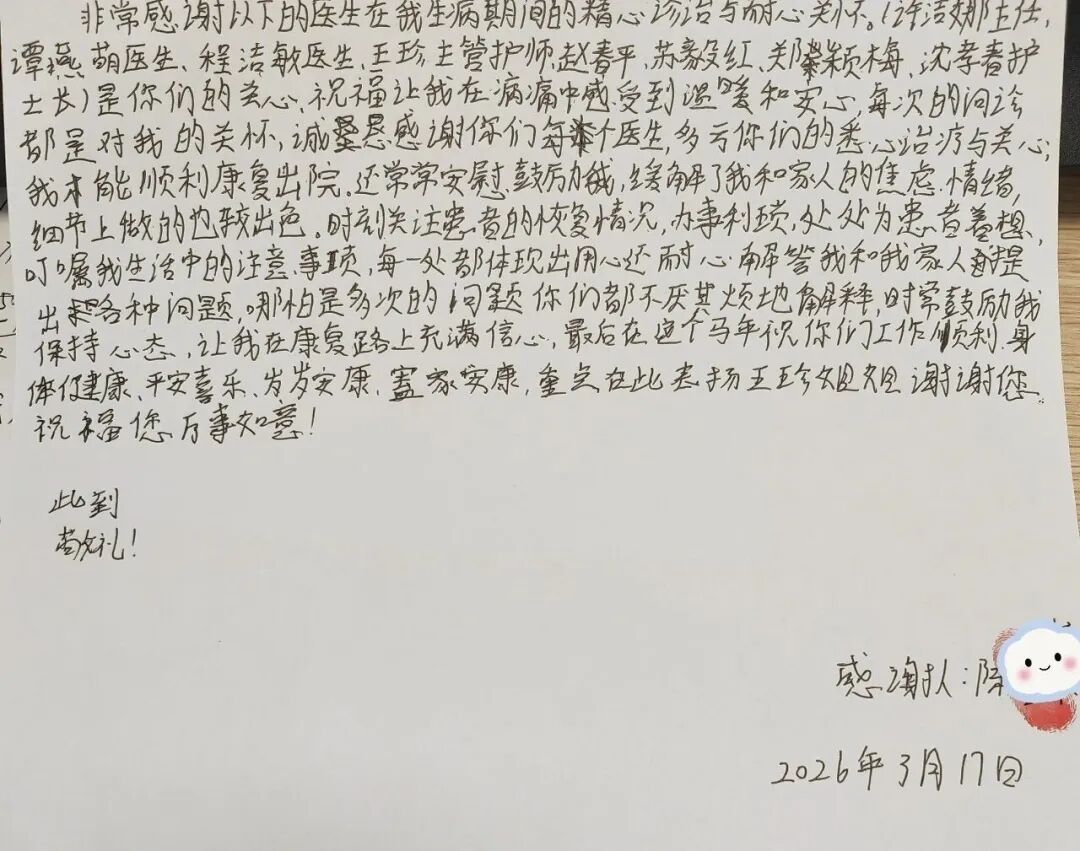 非常感谢以下的医生在我生病期间的精心诊治与耐心关怀。(许洁娜主任,
谭燕萌医生、程洁敏医生、王珍主管护师,赵春平、苏毅红、郑颖梅、沈孝春护
士长)是你们的关心、祝福让我在病痛中感受到温暖和安心,每次的问诊
都是对我的关怀,诚恳感谢你们每个医生,多亏你们的悉心治疗与关心;
我才能顺利康复出院。还常常安慰、鼓励我,缓解了我和家人的焦虑、情绪,
细节上做的也较出色。时刻关注患者的恢复情况,办事利琐,处处为患者着想,
叮嘱我生活中的注意事项,每一处都体现出用心还耐心解答我和我家人提
出各种问题,哪怕是多次的问题你们都不厌其烦地解释,时常鼓励我
保持心态,让我在康复路上充满信心,最后在这个马年祝你们工作顺利、身
体健康、平安喜乐、岁岁安康、阖家安康,重点在此表扬王珍姐姐谢谢您。
祝福您万事如意!
此到
敬礼!
感谢人:陈
2026年3月17日